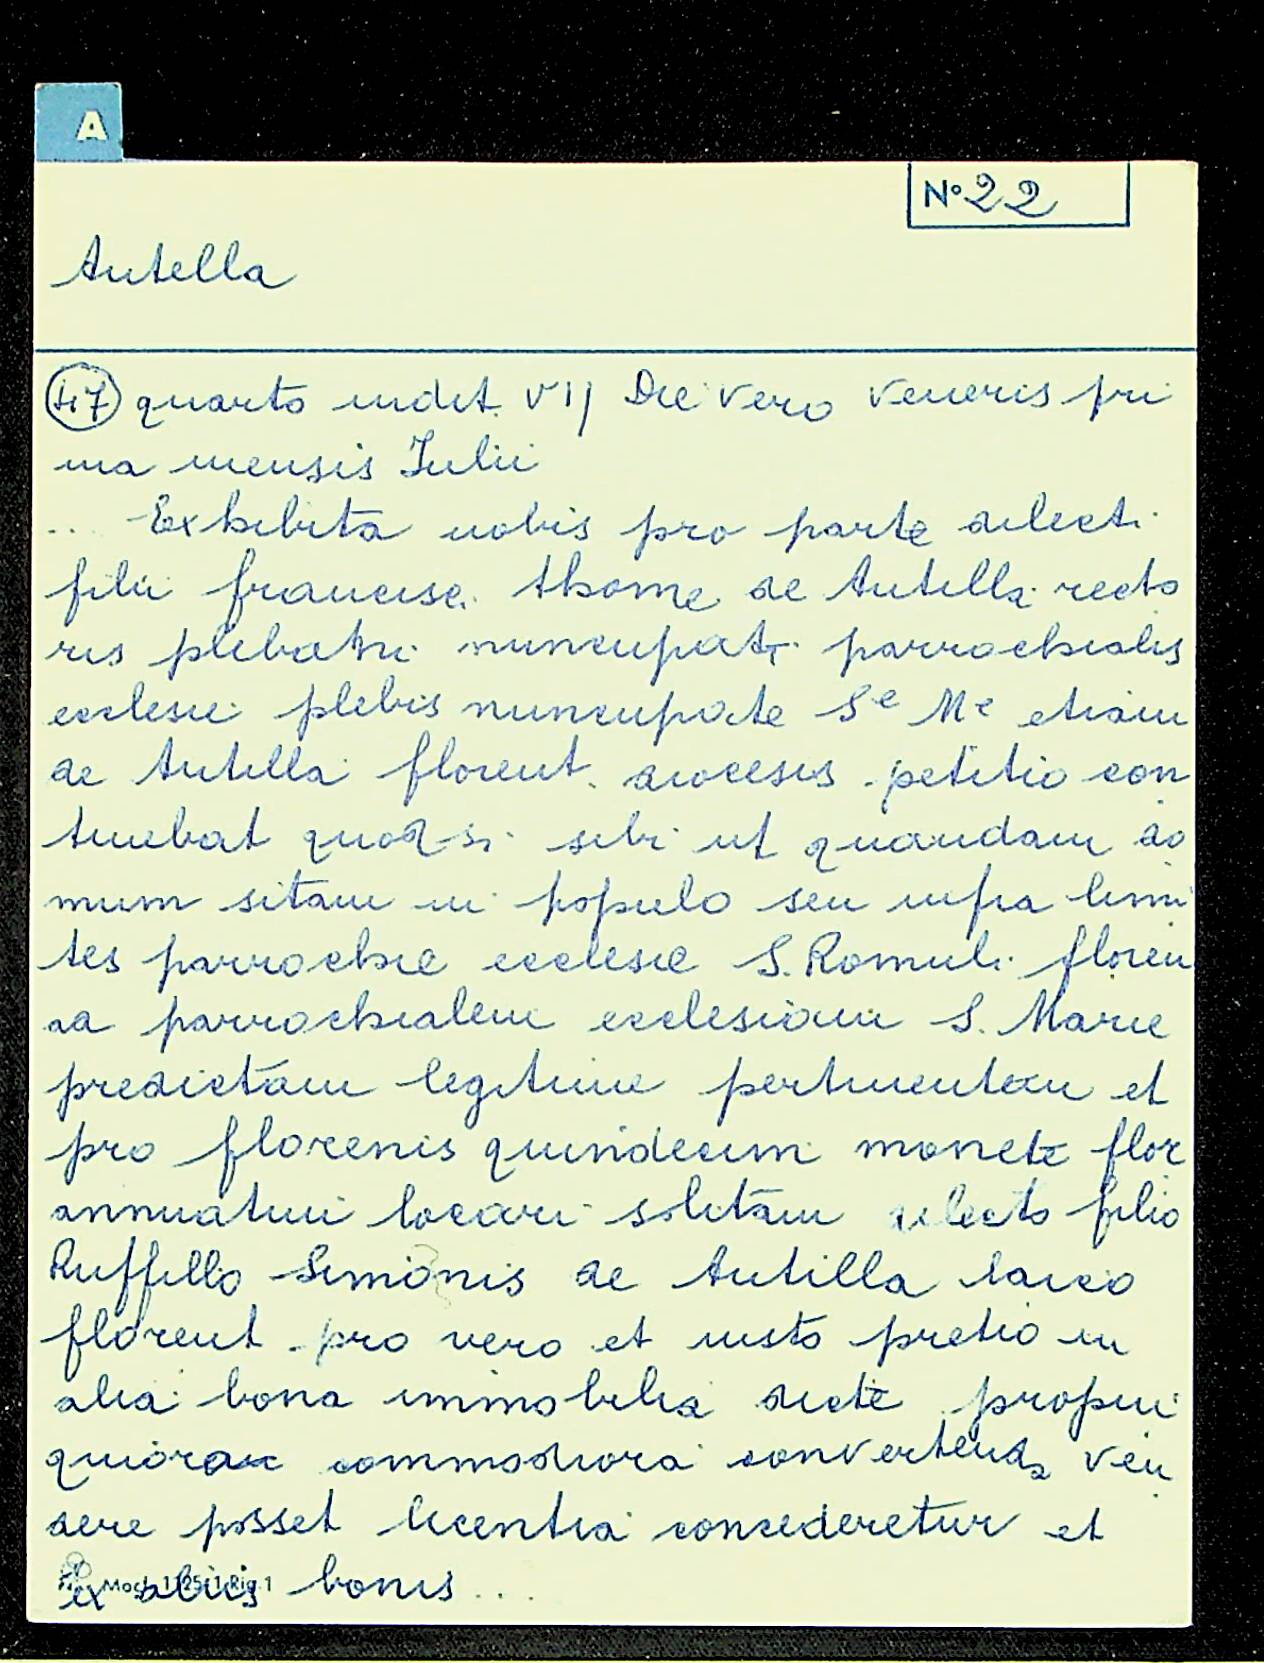 A
N° 22
Antella
47 quarto indit. VIJ Die vero veneris pri
ma mensis Iulii
... Exhibita nobis pro parte dilecti
filii francisci thome de Antilla recto
ris plebatui nuncupati parrochialis
ecclesie plebis nuncupate Se Me etiam
de Antilla florent. diocesis petitio con
tinebat quod si sibi ut quandam do
mum sitam in populo seu infra limi
tes parrochie ecclesie S. Romuli floren
ad parrochialem ecclesiam S. Marie
predictam legitime pertinentem et
pro florenis quindecim monete flor
annuatim locari solitam dilecto filio
Ruffillo Simonis de Antilla laico
florent. pro vero et iusto pretio in
alia bona immobilia dicte propin
quiora commodiora convertenda ven
dere posset licentia concederetur et
ex aliis bonis ...